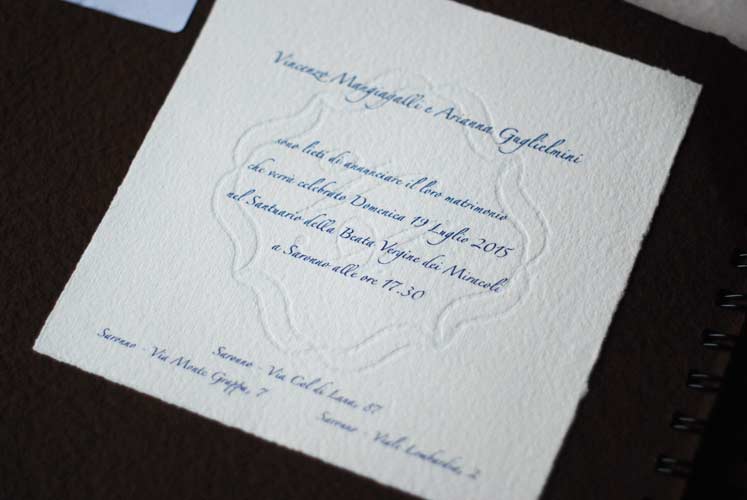 Vincenzo Mangiagalli e Arianna Guglielmini
sono lieti di annunciare il loro matrimonio
che verrà celebrato Domenica 19 Luglio 2015
nel Santuario della Beata Vergine dei Miracoli
a Saronno alle ore 17.30
Saronno - Via Col di Lana, 87
Saronno - Via Monte Grappa, 7
Saronno - Viale Lombardia, 2